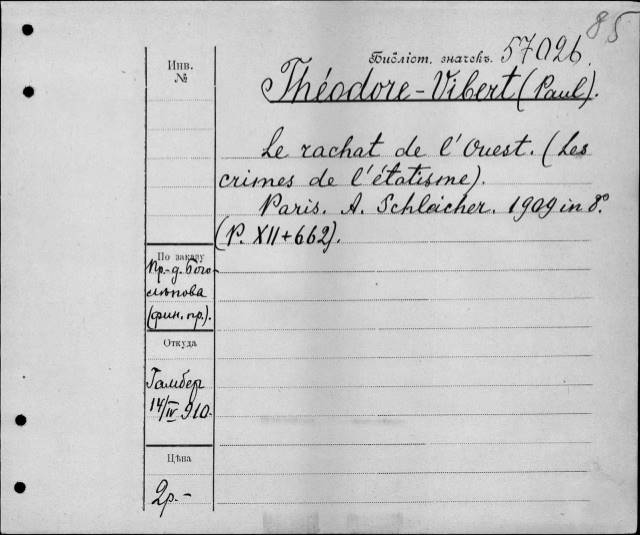 85
Библіот. значекъ. 57026.
Инв.
№
Théodore-Vibert (Paul).
Le rachat de l'Ouest. (Les
crimes de l'étatisme).
Paris. A. Schleicher. 1909 in 8°.
(P. XII+662).
По заказу
Пр.-д. Бого-
лѣпова
(фин. пр.).
Откуда
Гамбер
14/IV 910.
Цѣна
2р.-